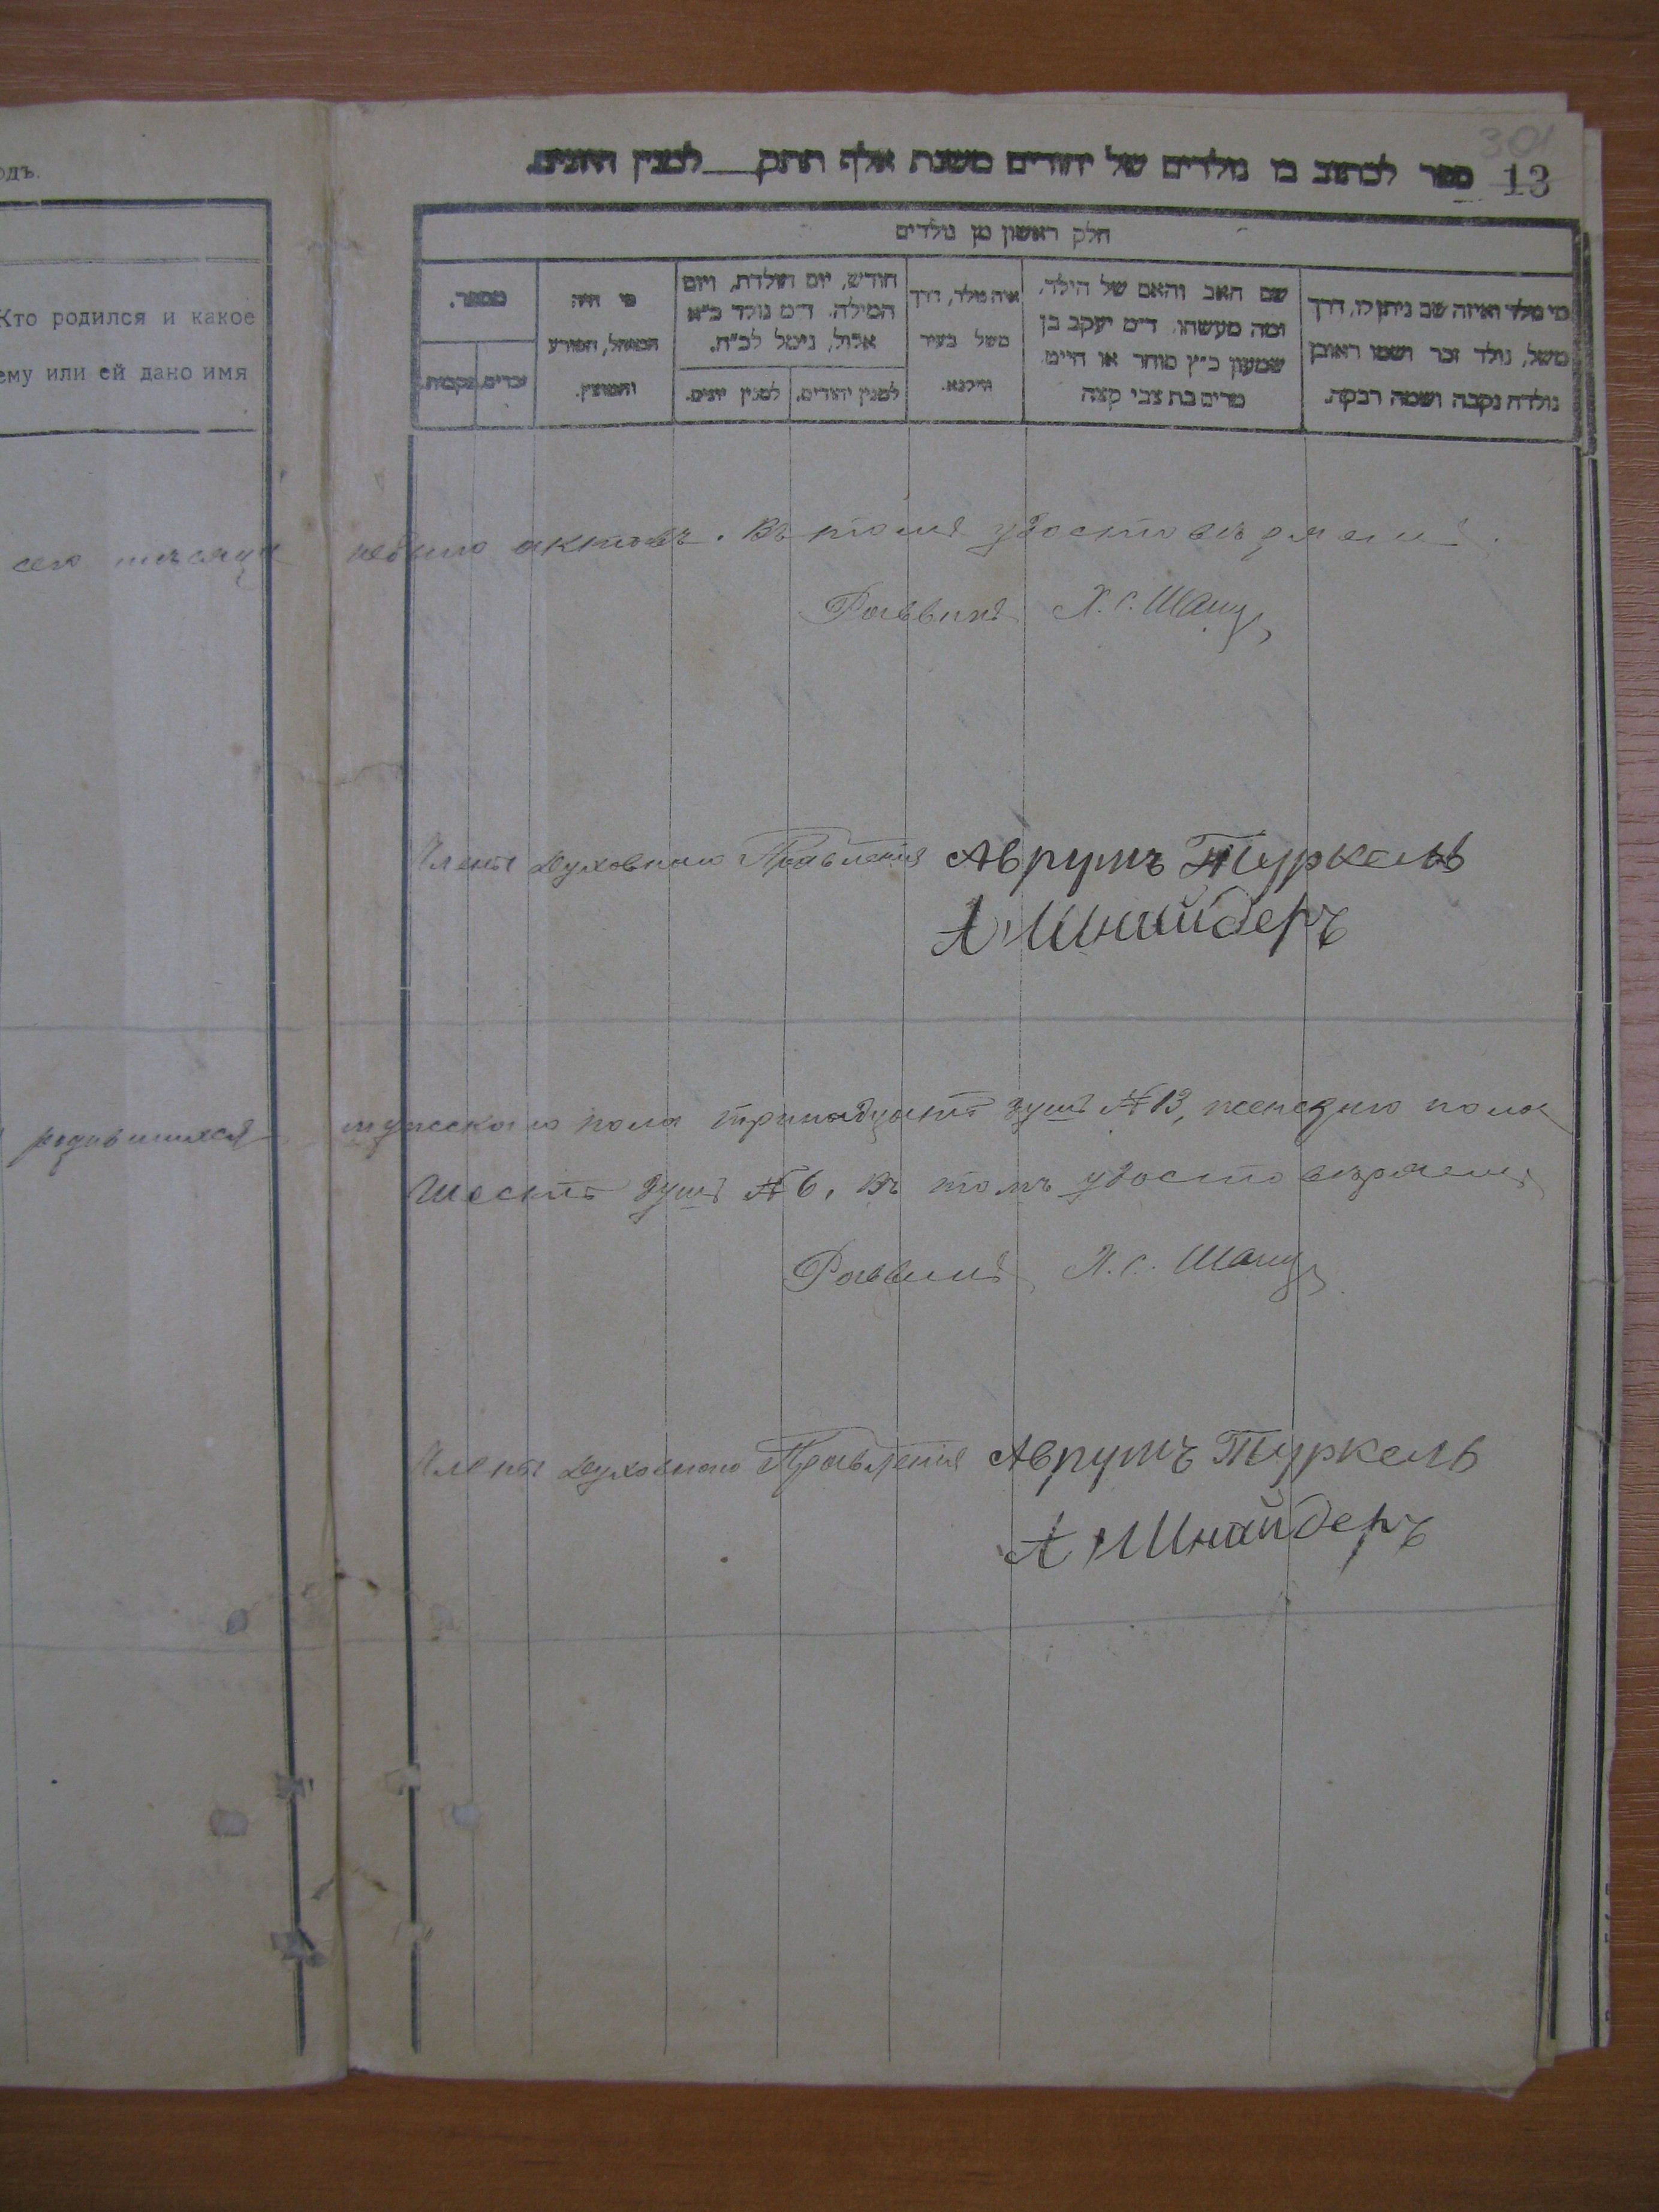 одъ.
Кто родился и какое
ему или ей дано имя
сего мѣсяца
родившихся
301
13
ספר לכתוב בו נולדים של יהודים משנת אלף תתק לסנין היוונים.
חלק ראשון מן נולדים
מי נולד ואיזה שם ניתן לו, דרך
משל, נולד זכר ושמו ראובן
נולדה נקבה ושמה רבקה.
שם האב והאם של הילד,
ומה מעשהו. ד״מ יעקב בן
שמעון כ״ץ סוחר או חייט
מרים בת צבי קצה
איה נולד, דרך
משל בעיר
ווילנא.
חודש, יום הולדת, ויום
המילה. ד״מ נולד כ״א
אלול, נימל לכ״ח.
למנין יהודים.
למנין יוונים.
מי היה
המוהל, הפורע
והמוצץ.
מספר.
זכרים.
נקבות.
небыло актовъ. Въ томъ удостовѣряемъ.
Раввинъ Х. С. Шанц
Члены Духовнаго Правленія Аврумъ Туркель
А Шнайдеръ
мужскаго пола тринадцать душъ № 13, женскаго пола
шесть душъ № 6. Въ томъ удостовѣряемъ
Раввинъ Х. С. Шанц
Члены Духовнаго Правленія Аврумъ Туркель
А Шнайдеръ